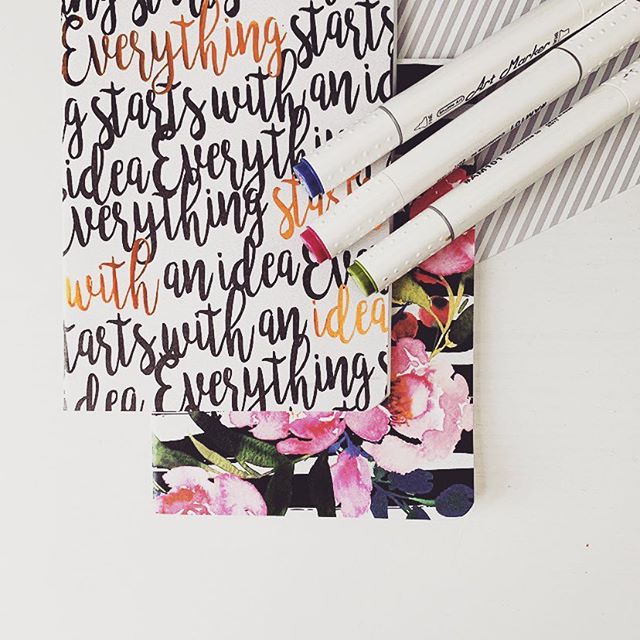 ing starts with an
Everything starts
g starts with an idea
idea Everything
Everything starts
with an idea Eve
starts with an idea
idea Everything s
Art Marker